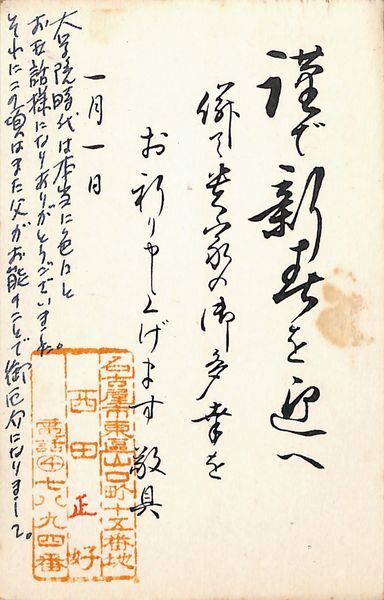 謹で新春を迎へ
併て貴家の御多幸を
お祈り申し上げます 敬具
一月一日
大学院時代は本当に色々と
お世話様になりありがとうございました。
それにこの頃はまた父がお能のことで御厄介になりまして。
名古屋市東区山口町十五番地
西田正好
電話 七八九四番